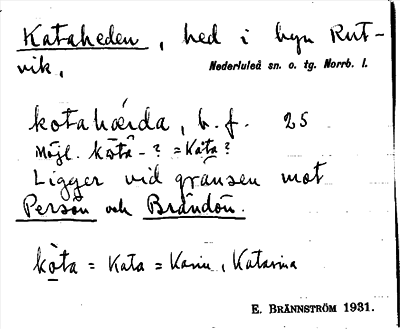 Kataheden, hed i byn Rut-
vik.
Nederluleå sn. o. tg. Norrb. l.
kotahæ̀ida, b. f. 25
Möjl. kota-? = Kata?
Ligger vid gränsen mot
Persön och Brändön.
kòta = Kata = Karin, Katarina
E. BRÄNNSTRÖM 1931.